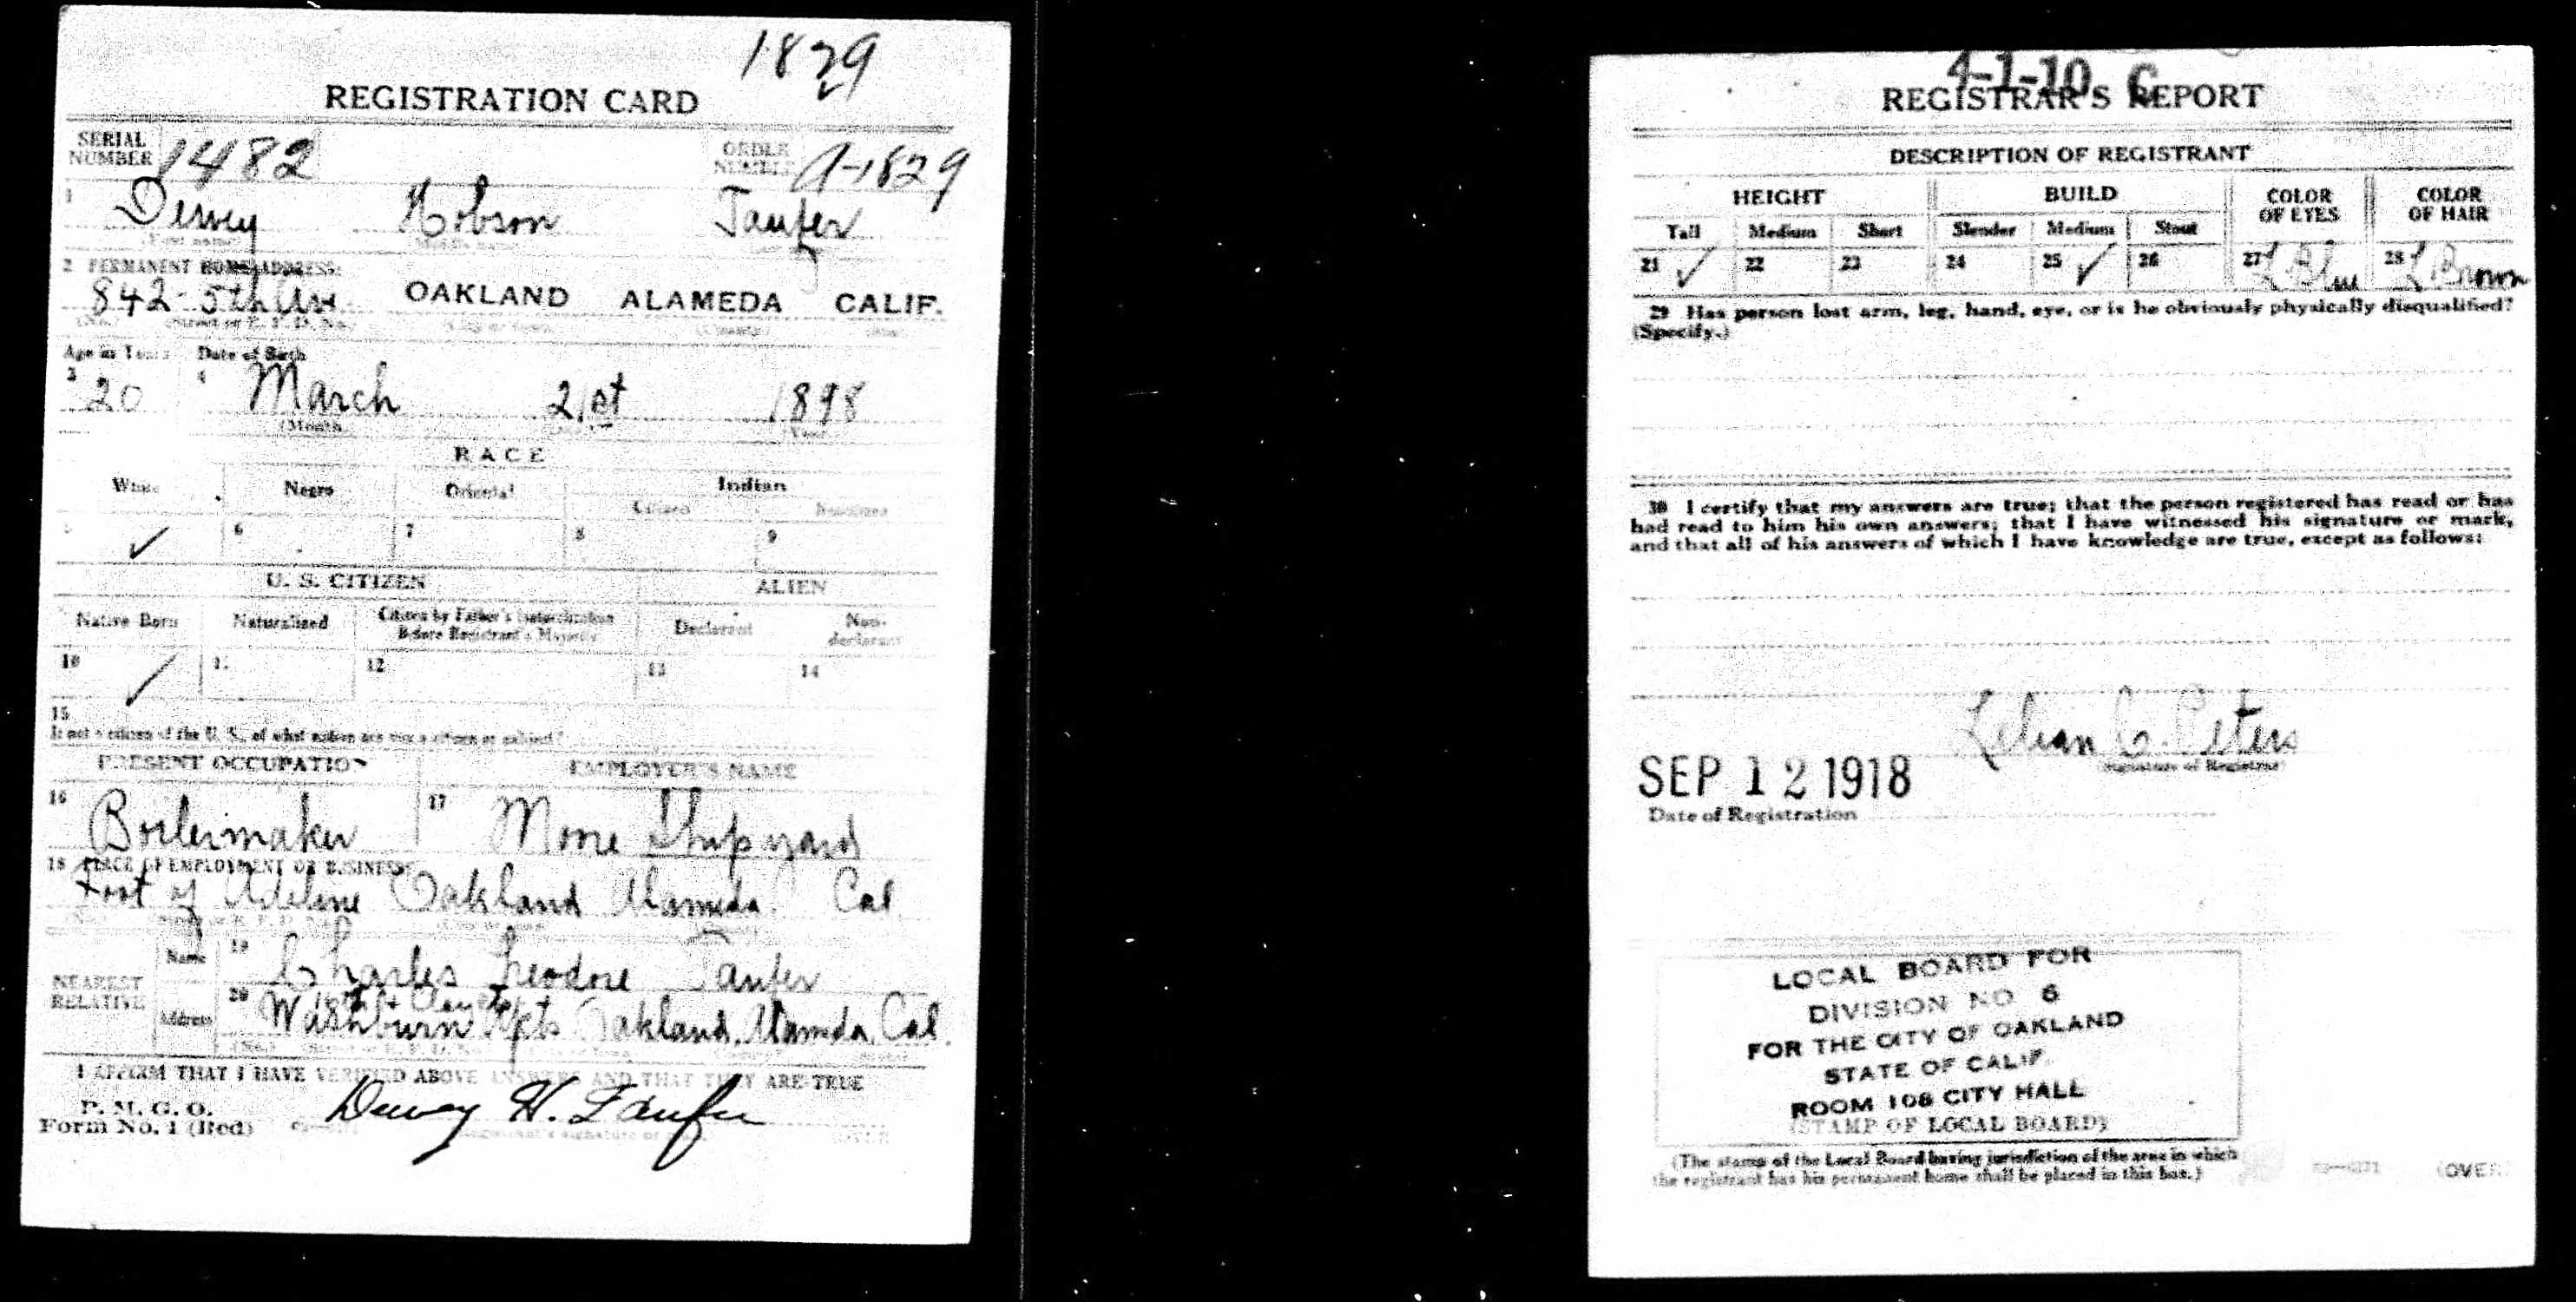 1829
REGISTRATION CARD
SERIAL NUMBER 1482 ORDER NUMBER A-1829
1 Dewey Hobson Taufer
(First name) (Middle name)
2 PERMANENT HOME ADDRESS:
842-5th Ave OAKLAND ALAMEDA CALIF.
(No.) (Street or R. F. D. No.) (City or town) (County)
Age in Years Date of Birth
3 20 4 March 21st 1898
(Month) (Year)
RACE
White Negro Oriental Indian
Citizen Noncitizen
5 ✓ 6 7 8 9
U. S. CITIZEN ALIEN
Native Born Naturalized Citizen by Father's Naturalization Before Registrant's Majority Declarant Non-declarant
10 ✓ 11 12 13 14
15
If not a citizen of the U. S., of what nation are you a citizen or subject?
PRESENT OCCUPATION EMPLOYER'S NAME
16 Boilermaker 17 Moore Shipyard
18 PLACE OF EMPLOYMENT OR BUSINESS:
Foot of Adeline Oakland Alameda Cal
NEAREST RELATIVE Name 19 Charles Theodore Taufer
Address 20 Washburn Apts Oakland, Alameda, Cal.
I AFFIRM THAT I HAVE VERIFIED ABOVE ANSWERS AND THAT THEY ARE TRUE
P. M. G. O.
Form No. 1 (Red) Dewey H. Taufer
4-1-10 C
REGISTRAR'S REPORT
DESCRIPTION OF REGISTRANT
HEIGHT BUILD COLOR OF EYES COLOR OF HAIR
Tall Medium Short Slender Medium Stout
21 ✓ 22 23 24 25 ✓ 26 27 L Blue 28 L Brown
29 Has person lost arm, leg, hand, eye, or is he obviously physically disqualified?
(Specify.)
30 I certify that my answers are true; that the person registered has read or has
had read to him his own answers; that I have witnessed his signature or mark,
and that all of his answers of which I have knowledge are true, except as follows:
Lilian C. Peters
(Signature of Registrar)
SEP 12 1918
Date of Registration
LOCAL BOARD FOR
DIVISION NO 6
FOR THE CITY OF OAKLAND
STATE OF CALIF.
ROOM 108 CITY HALL
(STAMP OF LOCAL BOARD)
(The stamp of the Local Board having jurisdiction of the area in which
the registrant has his permanent home shall be placed in this box.)
(OVER)